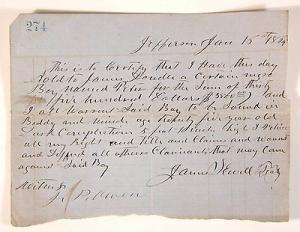 274
Jefferson Jan 15th 18
This is to Certify that I Have this day
Sold to James a Certain negro
Boy named Peter for the Sum of thirty
five hundred Dollars $3500 and
I all So Warrant Said Boy to be Sound in
Boddy and mind age twenty five year old
Dark Complection 5 feet high I
all my Right and title and Claims and warrant
and Defend all others Claimants that may Come
against Said Boy
James Seal